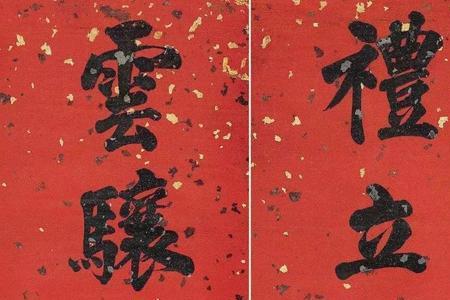 禮立
雲驤